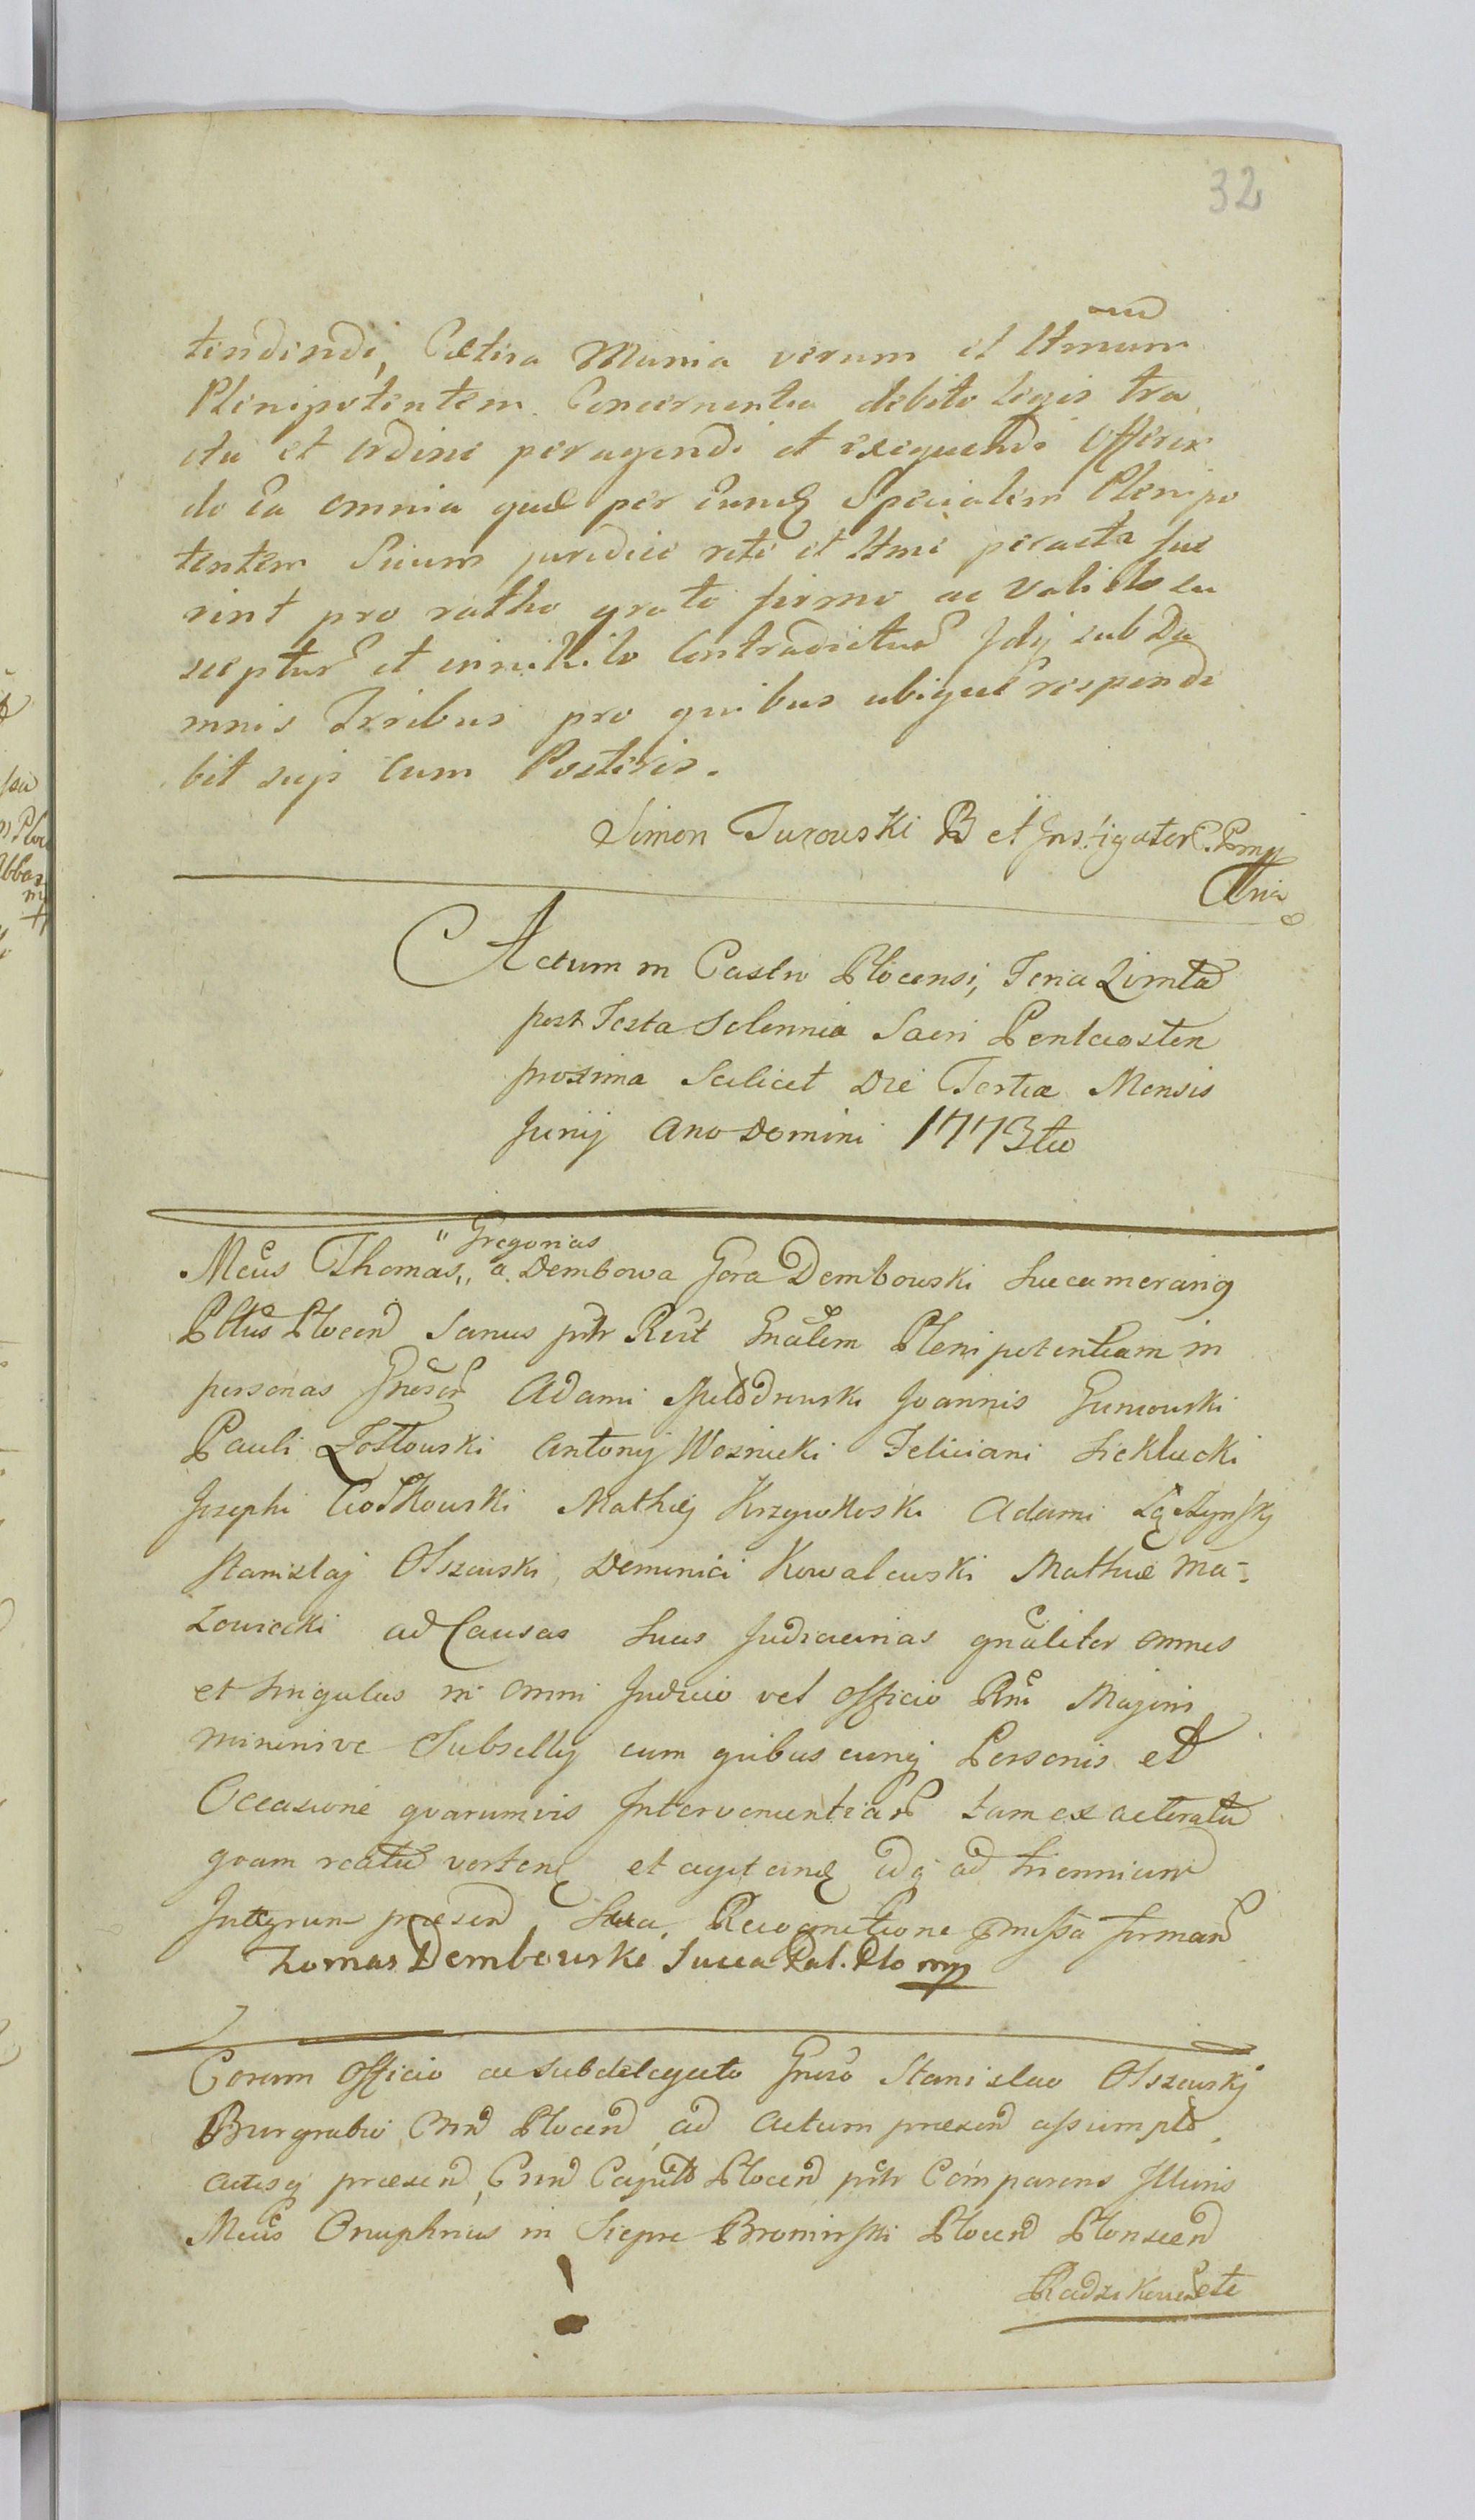 32
tendendi, Cætera Munia verum et Itmum
Plenipotentem Concernentia debito legis tra
ctu et ordine peragendi et exequendi Offeren
do Ea omnia quæ per eundq Specialem Plenipo
tentem Suum juridice rite et Itme peracta fue
rint pro ratho grato firmo ac Valido su
sceptur et in nihilo Contradictur Idq sub Da
mnis Trribus pro quibus ubique responde
bit seqs cum Posteris.
Simon Turowski B et Instigator C. Pmp
Actum in Castro Plocensi, Feria
post Festa Solennia Sacri Pentecosten
proxima Scilicet Die Tertia Mensis
Junij Ano Domini 1773tio
Gregorius
Mcus Thomas,, a Dembowa Gora Dembowski Succamerarig
Plltus Plocen Sanus pntr Rcit Gnalem Plenipotentiam in
personas Gnosor Adami Joannis Gumowski
Pauli Zottowski Antonij Woznicki Feliciani Sieklucki
Josephi Ciotkowski Mathiæ Krzywkoski Adami
Stanislaj Olszewski, Dominici Kowalewski Mathiæ Ma-
zowiecki ad Causas Suas Judiciarias gnaliter omnes
et Singulas in omni Judicio vel Officio Rni Majoris
minorisve Subsellij cum quibuscunq Personis et
Occasione quarumvis Intervenientiar tam ex actoratu
quam reatu verten et agitan idq ad triennium
Integrum præsen Sua Recognitione pmissa firman
Tomas Dembowski Succa Pal. Plo mp
Coram Officio ac subdelegato Gnoso Stanislao Olszewskj
Burgrabio Crn Plocen ad Actum præsen assumpto,
actisq præsen, Cren Capitt Plocen pntr Comparens Illuris
Mcus Onuphrius in Siepre Bromirski Plocen Plonscen
Radzikoven etc